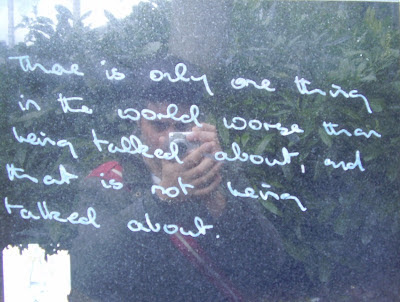 There is only one thing
in the world worse than
being talked about, and
that is not being
talked about.